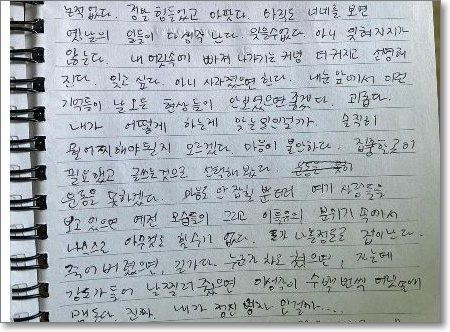 는적 없다. 정말 힘들었고 아팠다. 아직도 너네를 보면
옛날의 일들이 다 생각난다. 잊을수없다. 아니 잊혀지지가
않는다. 내 머릿속에 빠져 나가기는 커녕 더 커지고 선명해
진다. 잊고 싶다. 아니 사라졌으면 한다. 내눈앞에서 이런
기억들이 날 모든 현상들이 안보였으면 좋겠다. 괴롭다.
내가 어떻게 하는게 맞는일인걸까. 솔직히
뭘 어찌해야될지 모르겠다. 마음이 불안하다. 집중할곳이
필요했고 글쓰는것으로 선택해봤다.
운동을 못하겠다. 마음도 안 잡힐 뿐더러 여기 사람들을
보고 있으면 예전 모습들이 그리고 이 특유의 분위기 속에서
나 스스로 아무것도 할수가 없다. 나쁜점들로 잡아난다.
죽어버렸으면, 길가다 누가 차로 쳤으면, 자는데
강도가들어 날 찔러 줬으면, 이생각이 수백번씩 머릿속에
맴돈다. 진짜 내가 정신병자 인걸까....